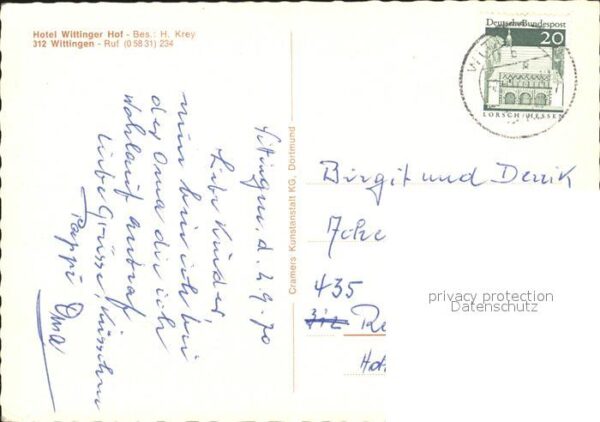 Hotel Wittinger Hof - Bes.: H. Krey
312 Wittingen - Ruf (0 58 31) 234
Wittingen, d. 2.9.70
Liebe Kinder,
nun bin ich bei
der Oma die ich
wohlauf antraf
Liebe Grüsse, Küsschen
Pappi Oma
Cramers Kunstanstalt KG, Dortmund
Deutsche Bundespost
20
LORSCH/HESSEN
Birgit und Derrik
435
312 Re
privacy protection
Datenschutz